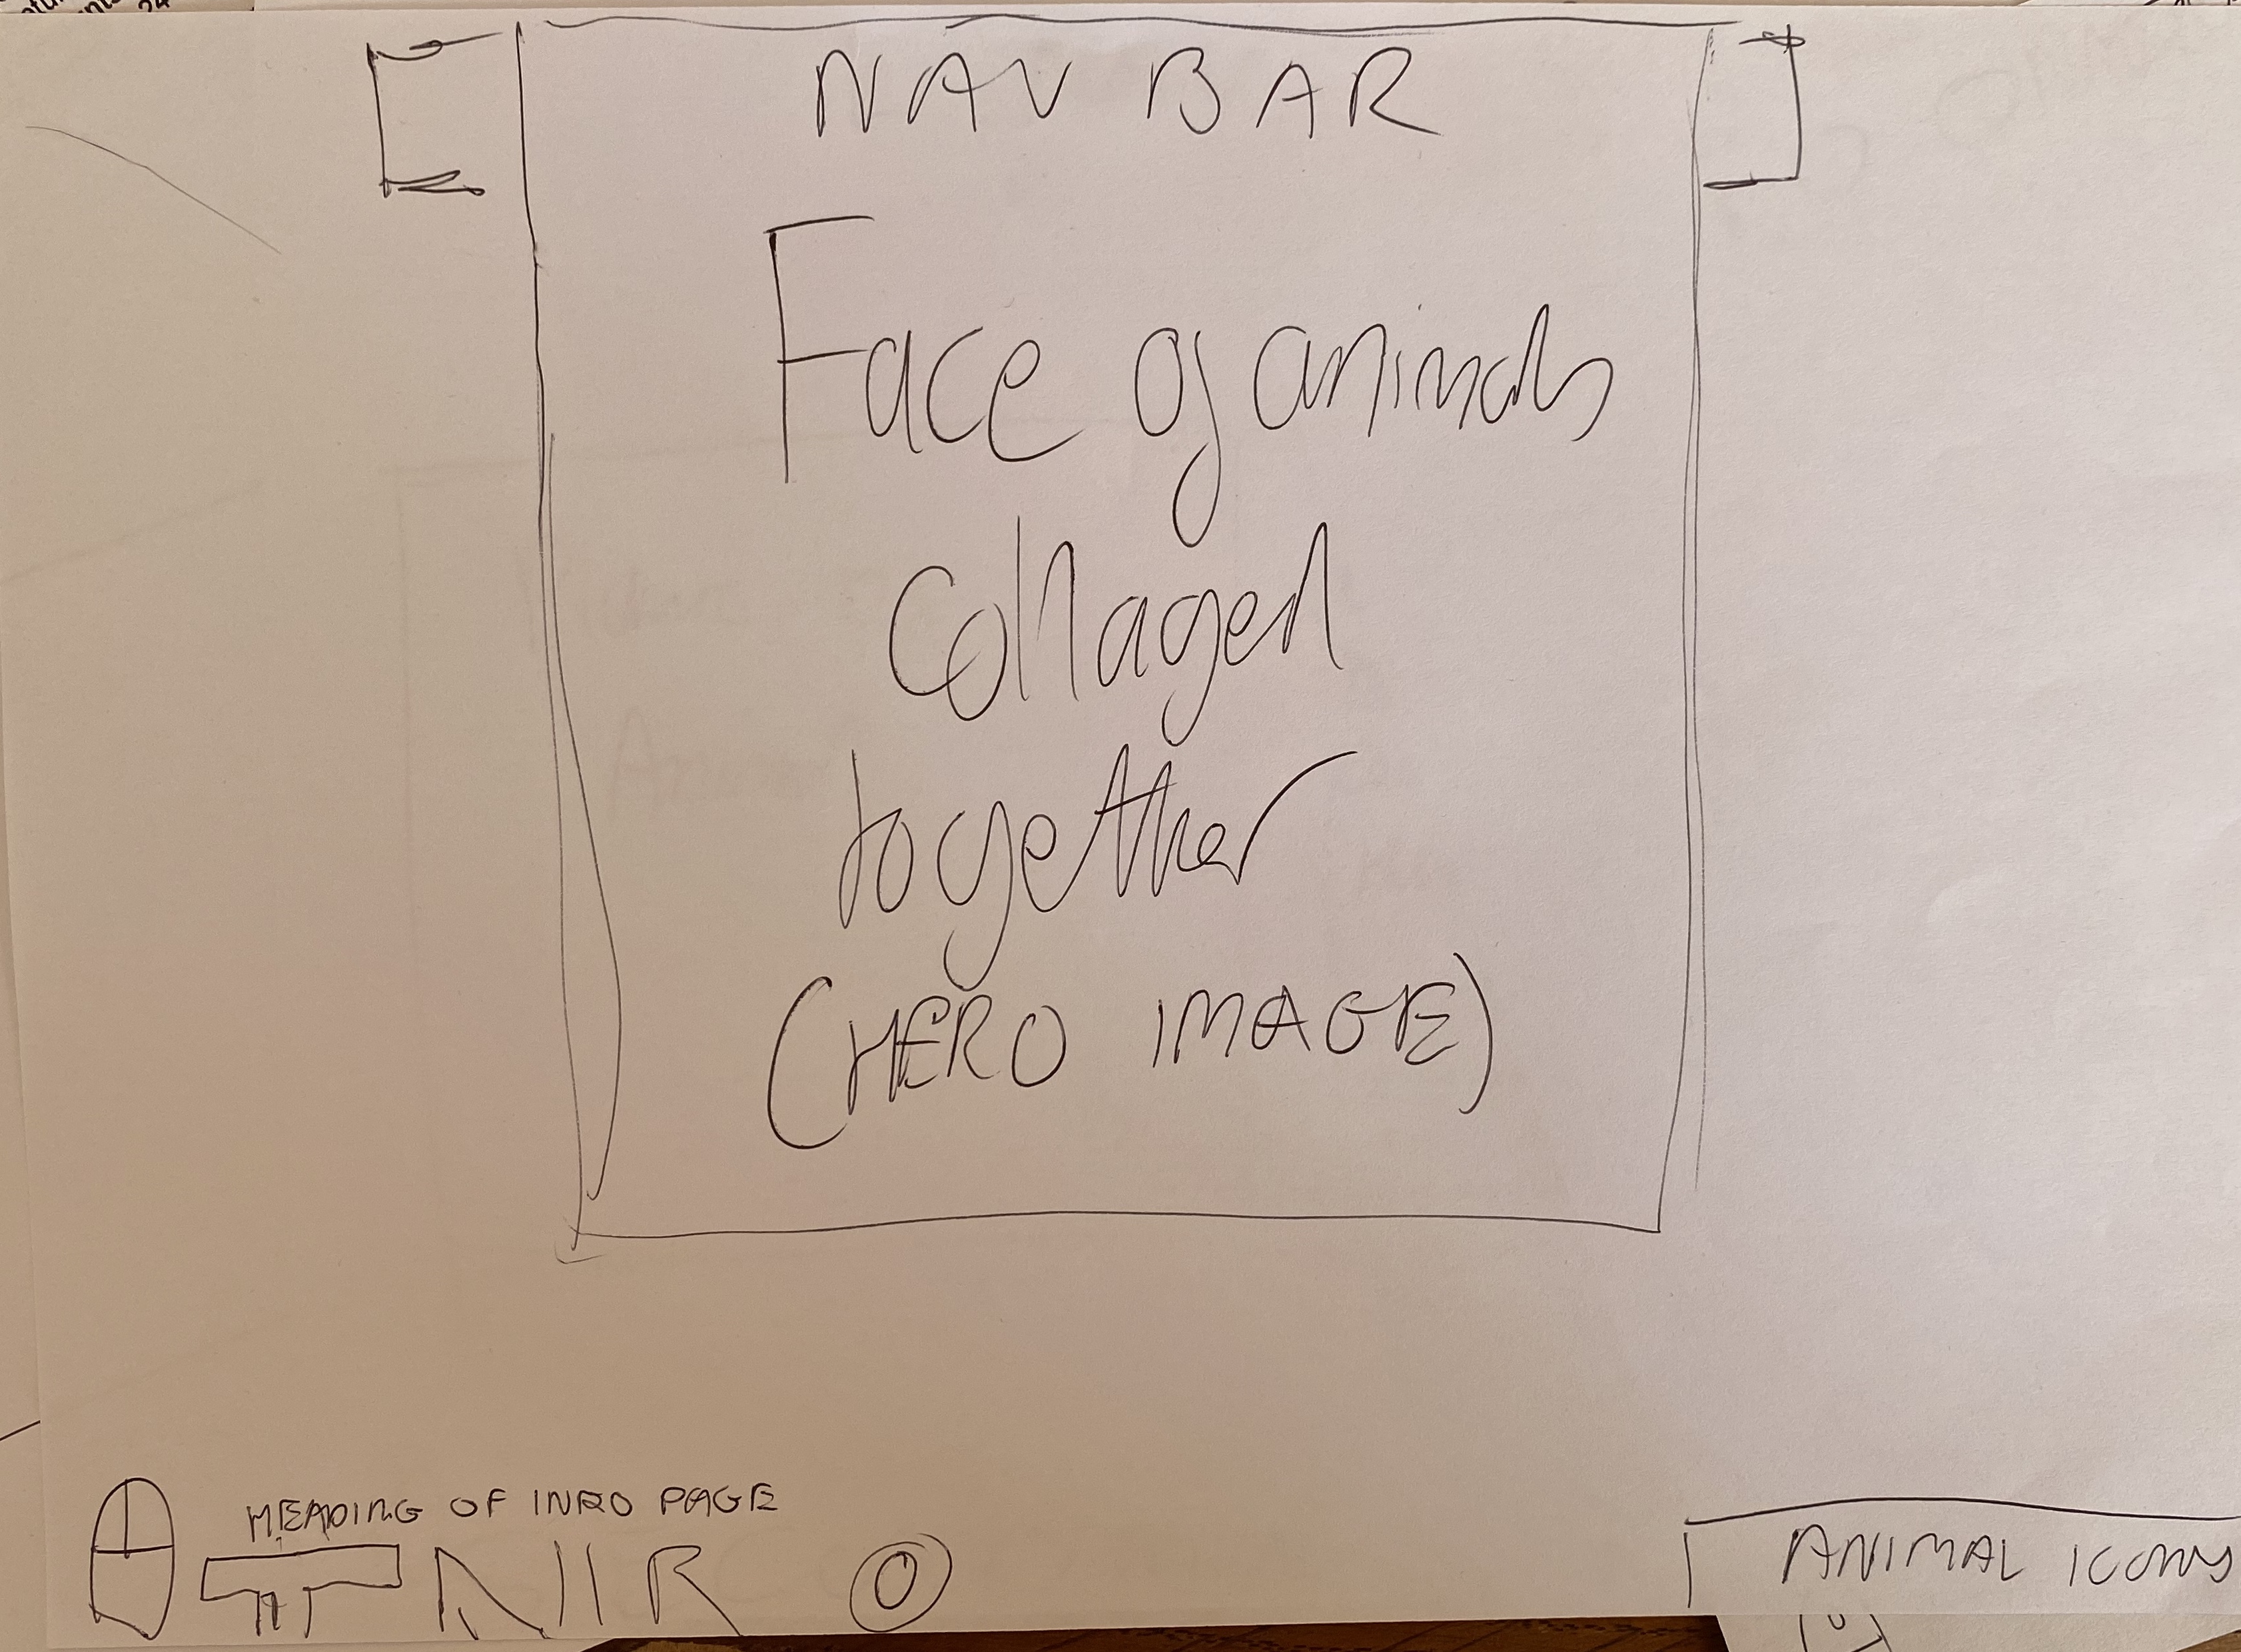 NAV BAR
Face of animals
Collaged
together
(HERO IMAGE)
HEADING OF INRO PAGE
ANIMAL ICONS